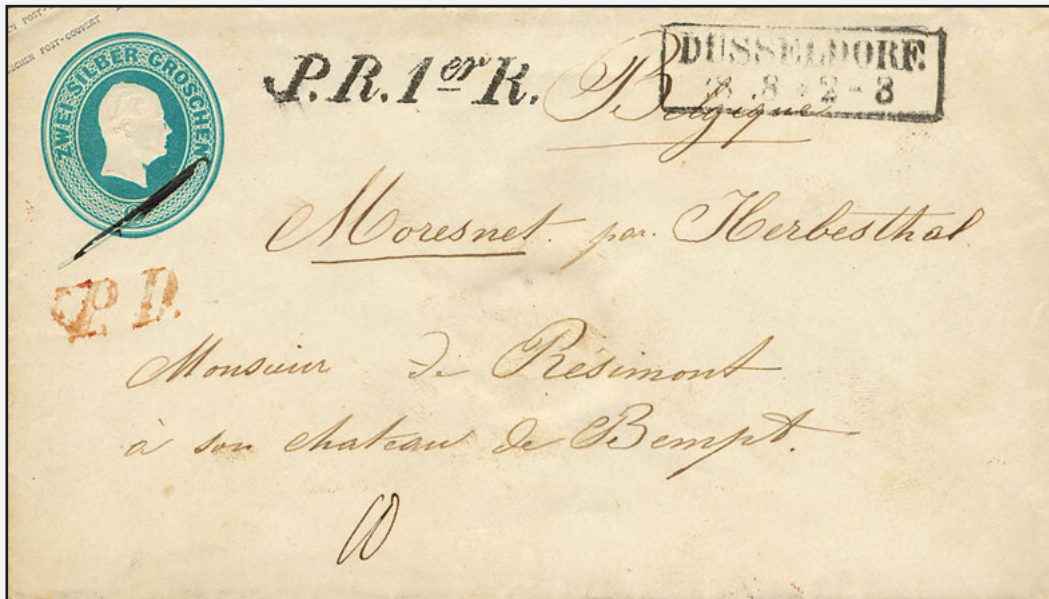 POST-COUVERT
POST-COUVERT
ZWEI SILBER GROSCHEN
P.R. 1er R.
DÜSSELDORF
8 2-3
Belgique
Moresnet par Herbesthal
P.D.
Monsieur de Résimont
à son chateau de Bempt.